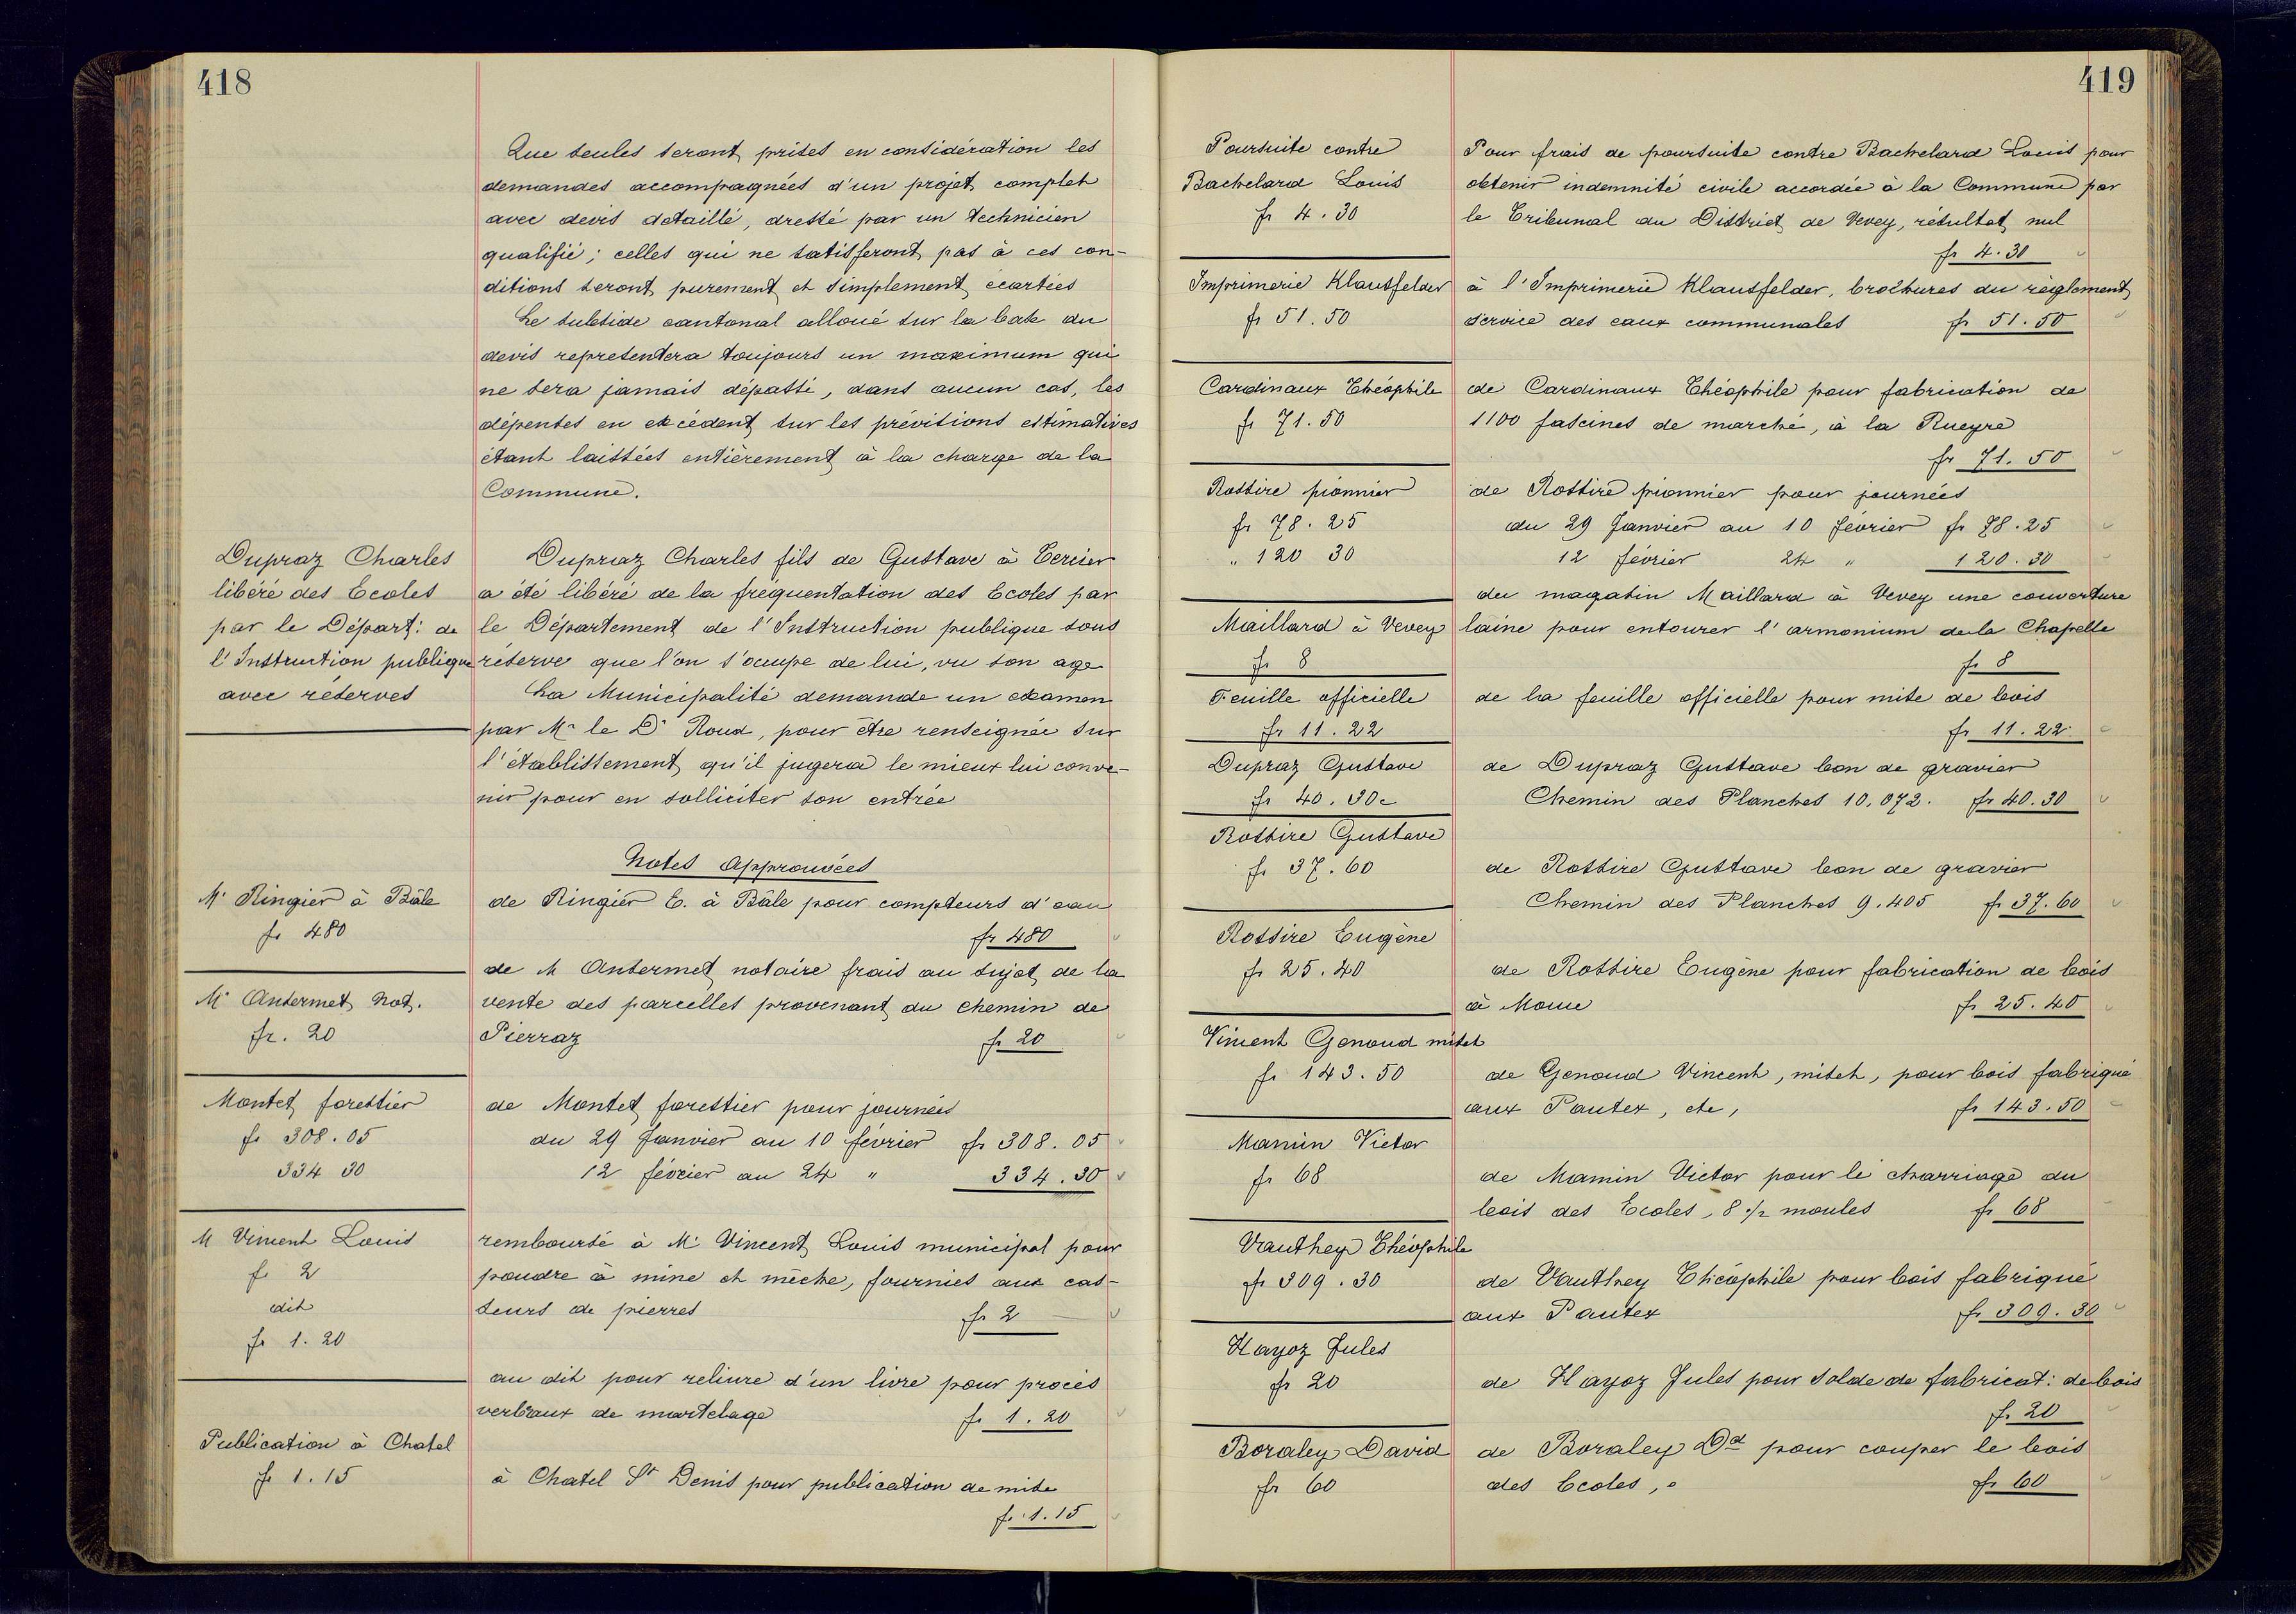 418
Que seules seront prises en considération les
demandes accompagnées d'un projet complet
avec devis detaillé, dressé par un technicien
qualifié; celles qui ne satisferont pas à ces con-
ditions seront purement et simplement écartées
Le subside cantonal alloué sur la base du
devis representera toujours un maximum qui
ne sera jamais dépassé, dans aucun cas, les
dépenses en excédent sur les prévisions estimatives
étant laissées entièrement à la charge de la
Commune.
Dupraz Charles
libéré des Ecoles
par le Départ: de
l'Instruction publique
avec réserves
Dupraz Charles fils de Gustave à Tercier
a été libéré de la fréquentation des Ecoles par
le Département de l'Instruction publique sous
réserve que l'on s'ocupe de lui, vu son age
La Municipalité demande un examen
par Mr le Dr Roud, pour être renseignée sur
l'établissement qu'il jugera le mieux lui conve-
nir pour en solliciter son entrée
Notes Approuvées
Mr Ringier à Bâle
fr 480
de Ringier E. à Bâle pour compteurs d'eau
fr 480
Mr Ansermet Not.
fr. 20
de M Ansermet notaire frais au sujet de la
vente des parcelles provenant du chemin de
Pierraz fr 20
Montet forestier
fr 308.05
334 30
de Montet forestier pour journées
du 29 Janvier au 10 février fr 308.05
12 février au 24 " 334.30
M Vincent Louis
fr 2
dit
fr 1.20
remboursé à Mr Vincent Louis municipal pour
poudre à mine et mèche, fournies aux cas-
seurs de pierres fr 2
au dit pour reliure d'un livre pour procès
verbaux de martelage fr 1.20
Publication à Chatel
fr 1.15
à Chatel St Denis pour publication de mise
fr 1.15
419
Poursuite contre
Bachelard Louis
fr 4.30
Pour frais de poursuite contre Bachelard Louis pour
obtenir indemnité civile accordée à la Commune par
le Tribunal du District de Vevey, résultat nul
fr 4.30
Imprimerie Klausfelder
fr 51.50
à l'Imprimerie Klausfelder, brochures du règlement
service des eaux communales fr 51.50
Cardinaux Théophile
fr 71.50
de Cardinaux Théophile pour fabrication de
1100 fascines de marché, à la Rueyre
fr 71.50
Rossire pionnier
fr 78.25
" 120 30
de Rossire pionnier pour journées
du 29 Janvier au 10 février fr 78.25
12 février 24 " 120.30
Maillard à Vevey
fr 8
du magasin Maillard à Vevey une couverture
laine pour entourer l'armonium de la Chapelle
fr 8
Feuille officielle
fr 11.22
de la feuille officielle pour mise de bois
fr 11.22
Dupraz Gustave
fr 40.30c
de Dupraz Gustave bon de gravier
Chemin des Planches 10,072. fr 40.30
Rossire Gustave
fr 37.60
de Rossire Gustave bon de gravier
Chemin des Planches 9.405 fr 37.60
Rossire Eugène
fr 25.40
de Rossire Eugène pour fabrication de bois
à fr 25.40
Vincent Genoud mitet
fr 143.50
de Genoud Vincent, mitet, pour bois fabriqué
aux Pautex, etc, fr 143.50
Mamin Victor
fr 68
de Mamin Victor pour le charriage du
bois des Ecoles, 8 1/2 moules fr 68
Vauthey Théophile
fr 309.30
de Vauthey Théophile pour bois fabriqué
aux Pautex fr 309.30
Hayoz Jules
fr 20
de Hayoz Jules pour solde de fabricat: de bois
fr 20
Boraley David
fr 60
de Boraley Dd pour couper le bois
des Ecoles, fr 60